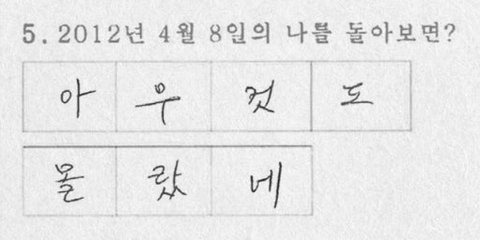 5. 2012년 4월 8일의 나를 돌아보면?
아우것도
몰랐네